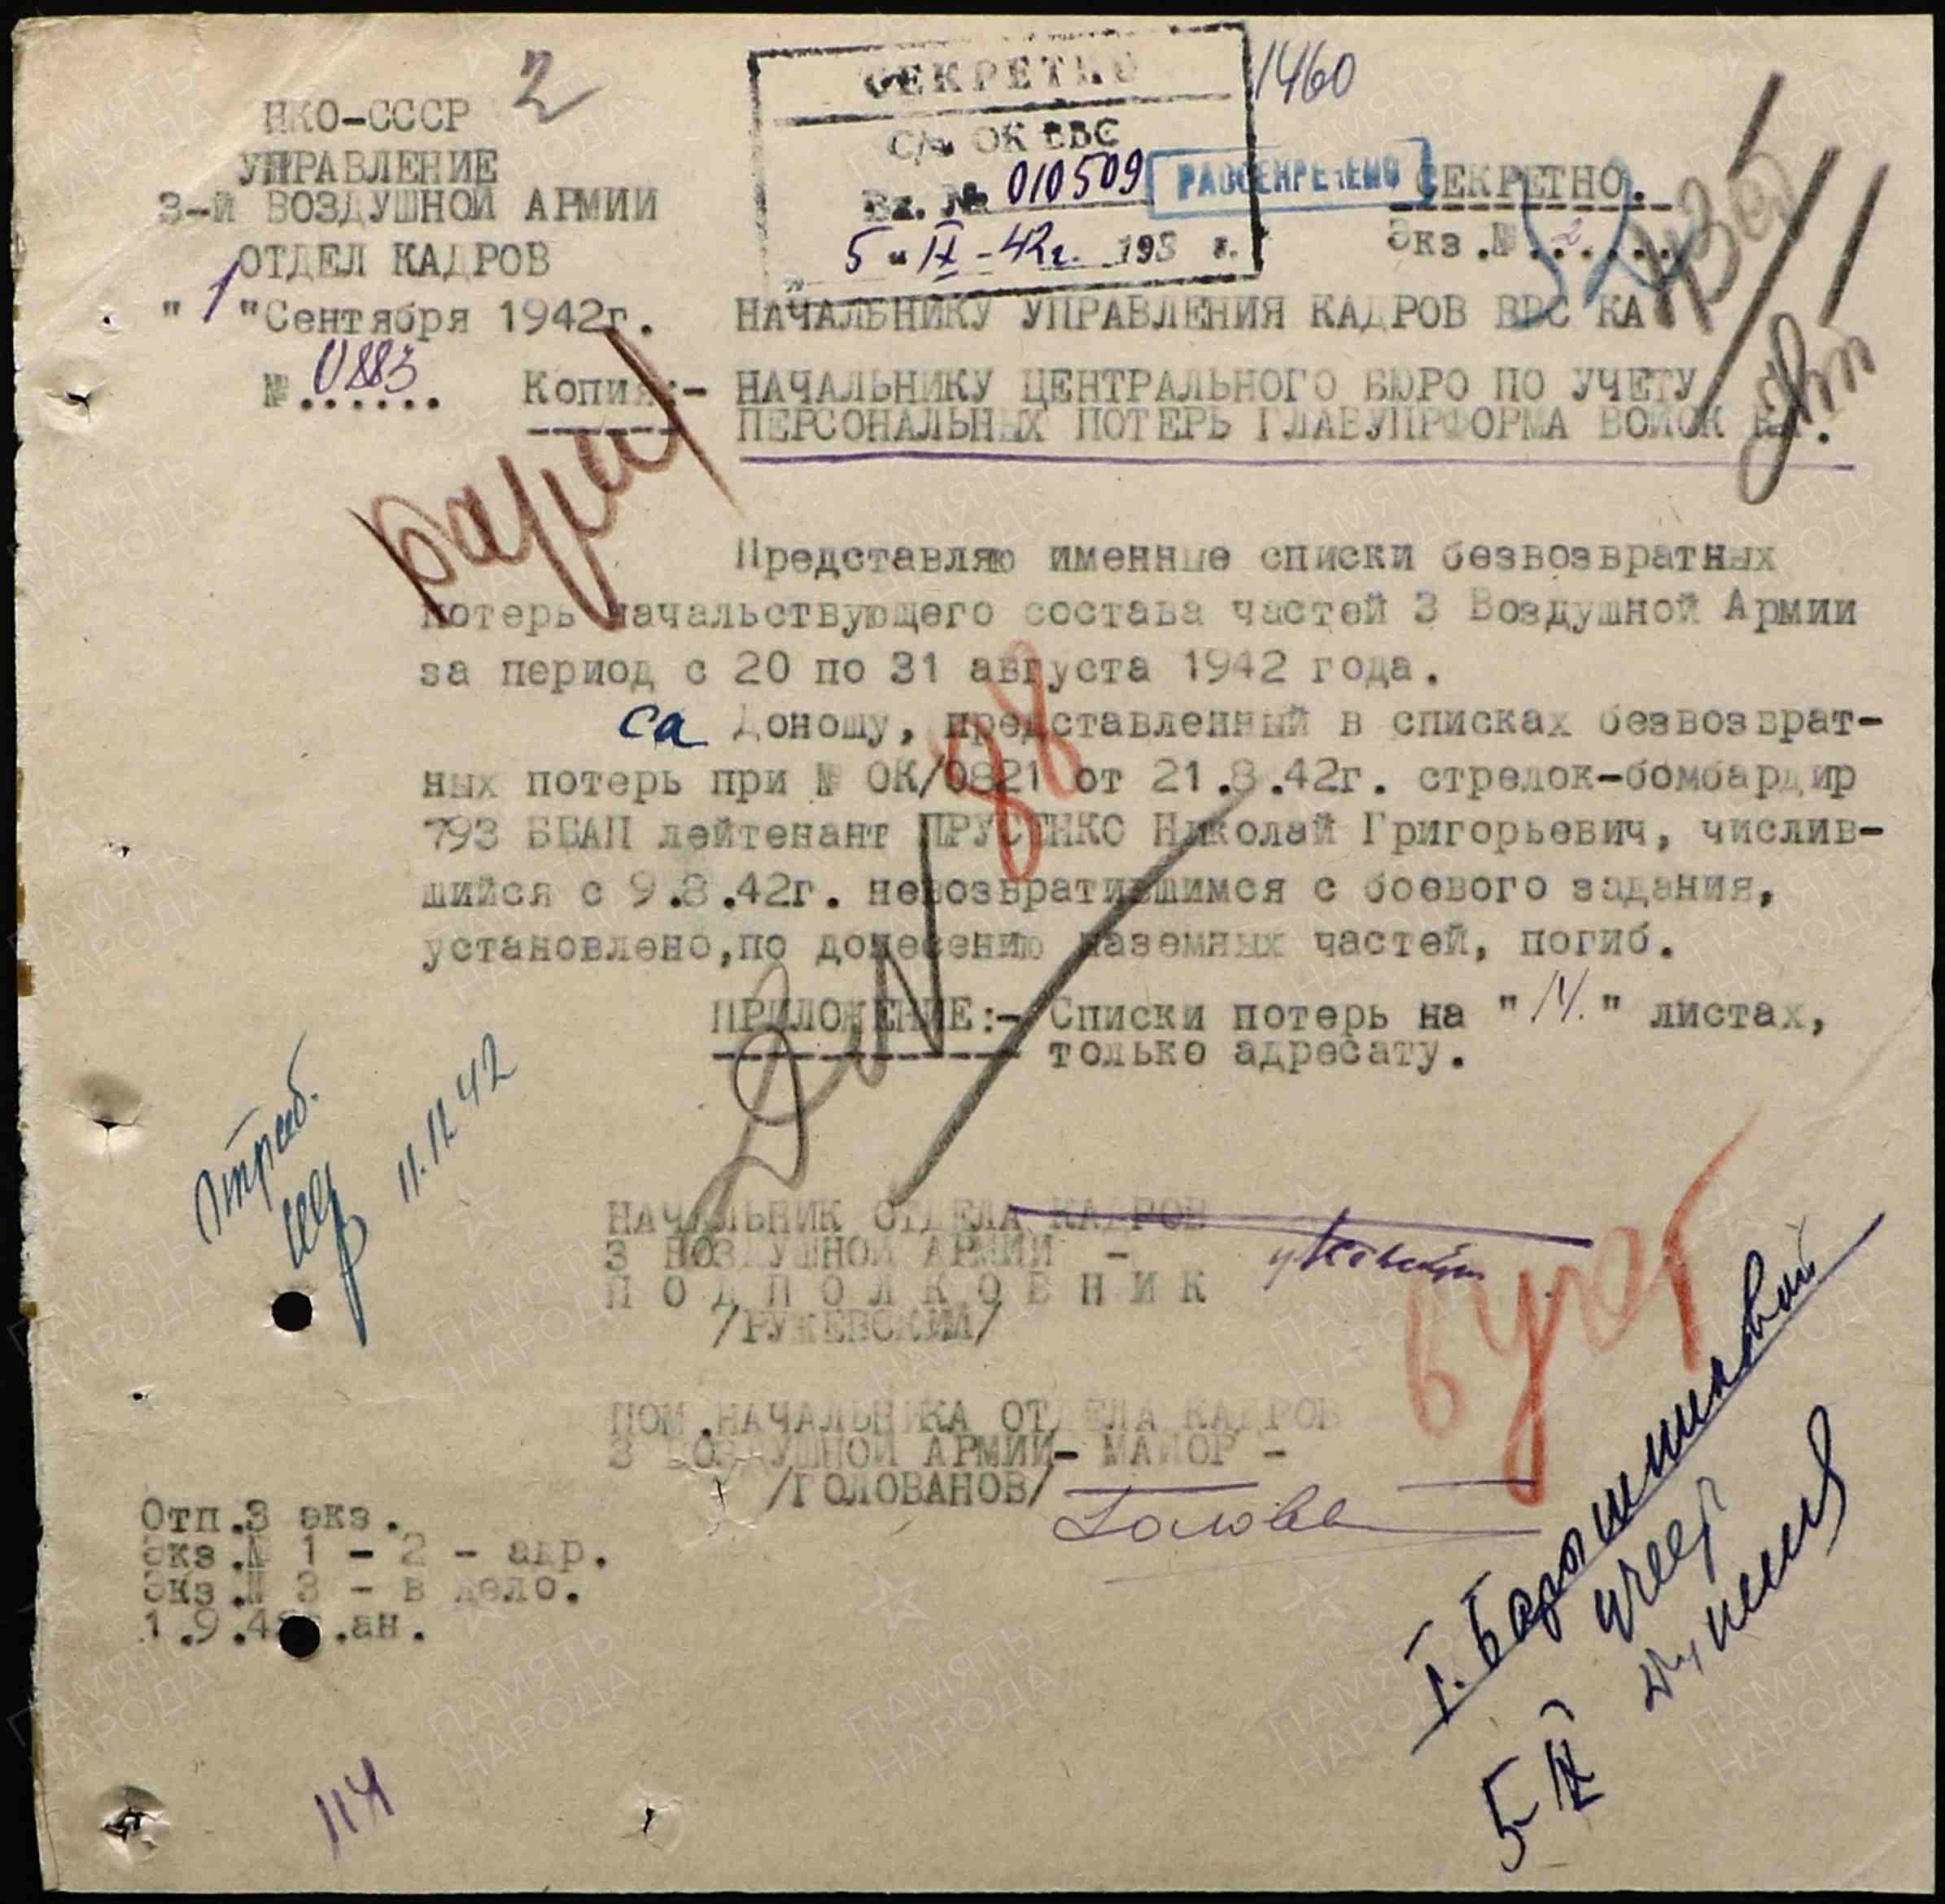 2
НКО-СССР
УПРАВЛЕНИЕ
3-й ВОЗДУШНОЙ АРМИИ
ОТДЕЛ КАДРОВ
" 1 "Сентября 1942г.
№ 0883
СЕКРЕТНО
С/ч ОК ВВС
Вх. № 010509
5 " IX - 42г. 193 г.
1460
РАССЕКРЕЧЕНО
СЕКРЕТНО.
Экз.№ 2
НАЧАЛЬНИКУ УПРАВЛЕНИЯ КАДРОВ ВВС КА
Копия:- НАЧАЛЬНИКУ ЦЕНТРАЛЬНОГО БЮРО ПО УЧЕТУ
ПЕРСОНАЛЬНЫХ ПОТЕРЬ ГЛАВУПРФОРМА ВОЙСК КА.
Представляю именные списки безвозвратных
потерь начальствующего состава частей 3 Воздушной Армии
за период с 20 по 31 августа 1942 года.
са Доношу, представленный в списках безвозврат-
ных потерь при № ОК/0821 от 21.8.42г. стрелок-бомбардир
793 ББАП лейтенант ПРУСЕНКО Николай Григорьевич, числив-
шийся с 9.8.42г. невозвратившимся с боевого задания,
установлено,по донесению наземных частей, погиб.
ПРИЛОЖЕНИЕ:- Списки потерь на "14." листах,
только адресату.
98
11.11.42
НАЧАЛЬНИК ОТДЕЛА КАДРОВ
3 ВОЗДУШНОЙ АРМИИ -
ПОДПОЛКОВНИК
/РУЖЕВСКИЙ/
В учет
ПОМ.НАЧАЛЬНИКА ОТДЕЛА КАДРОВ
3 ВОЗДУШНОЙ АРМИИ- МАЙОР -
/ГОЛОВАНОВ/
Отп.3 экз.
Экз.№ 1 - 2 - адр.
Экз.№ 3 - в дело.
1.9.42г.ан.
5 IX
114